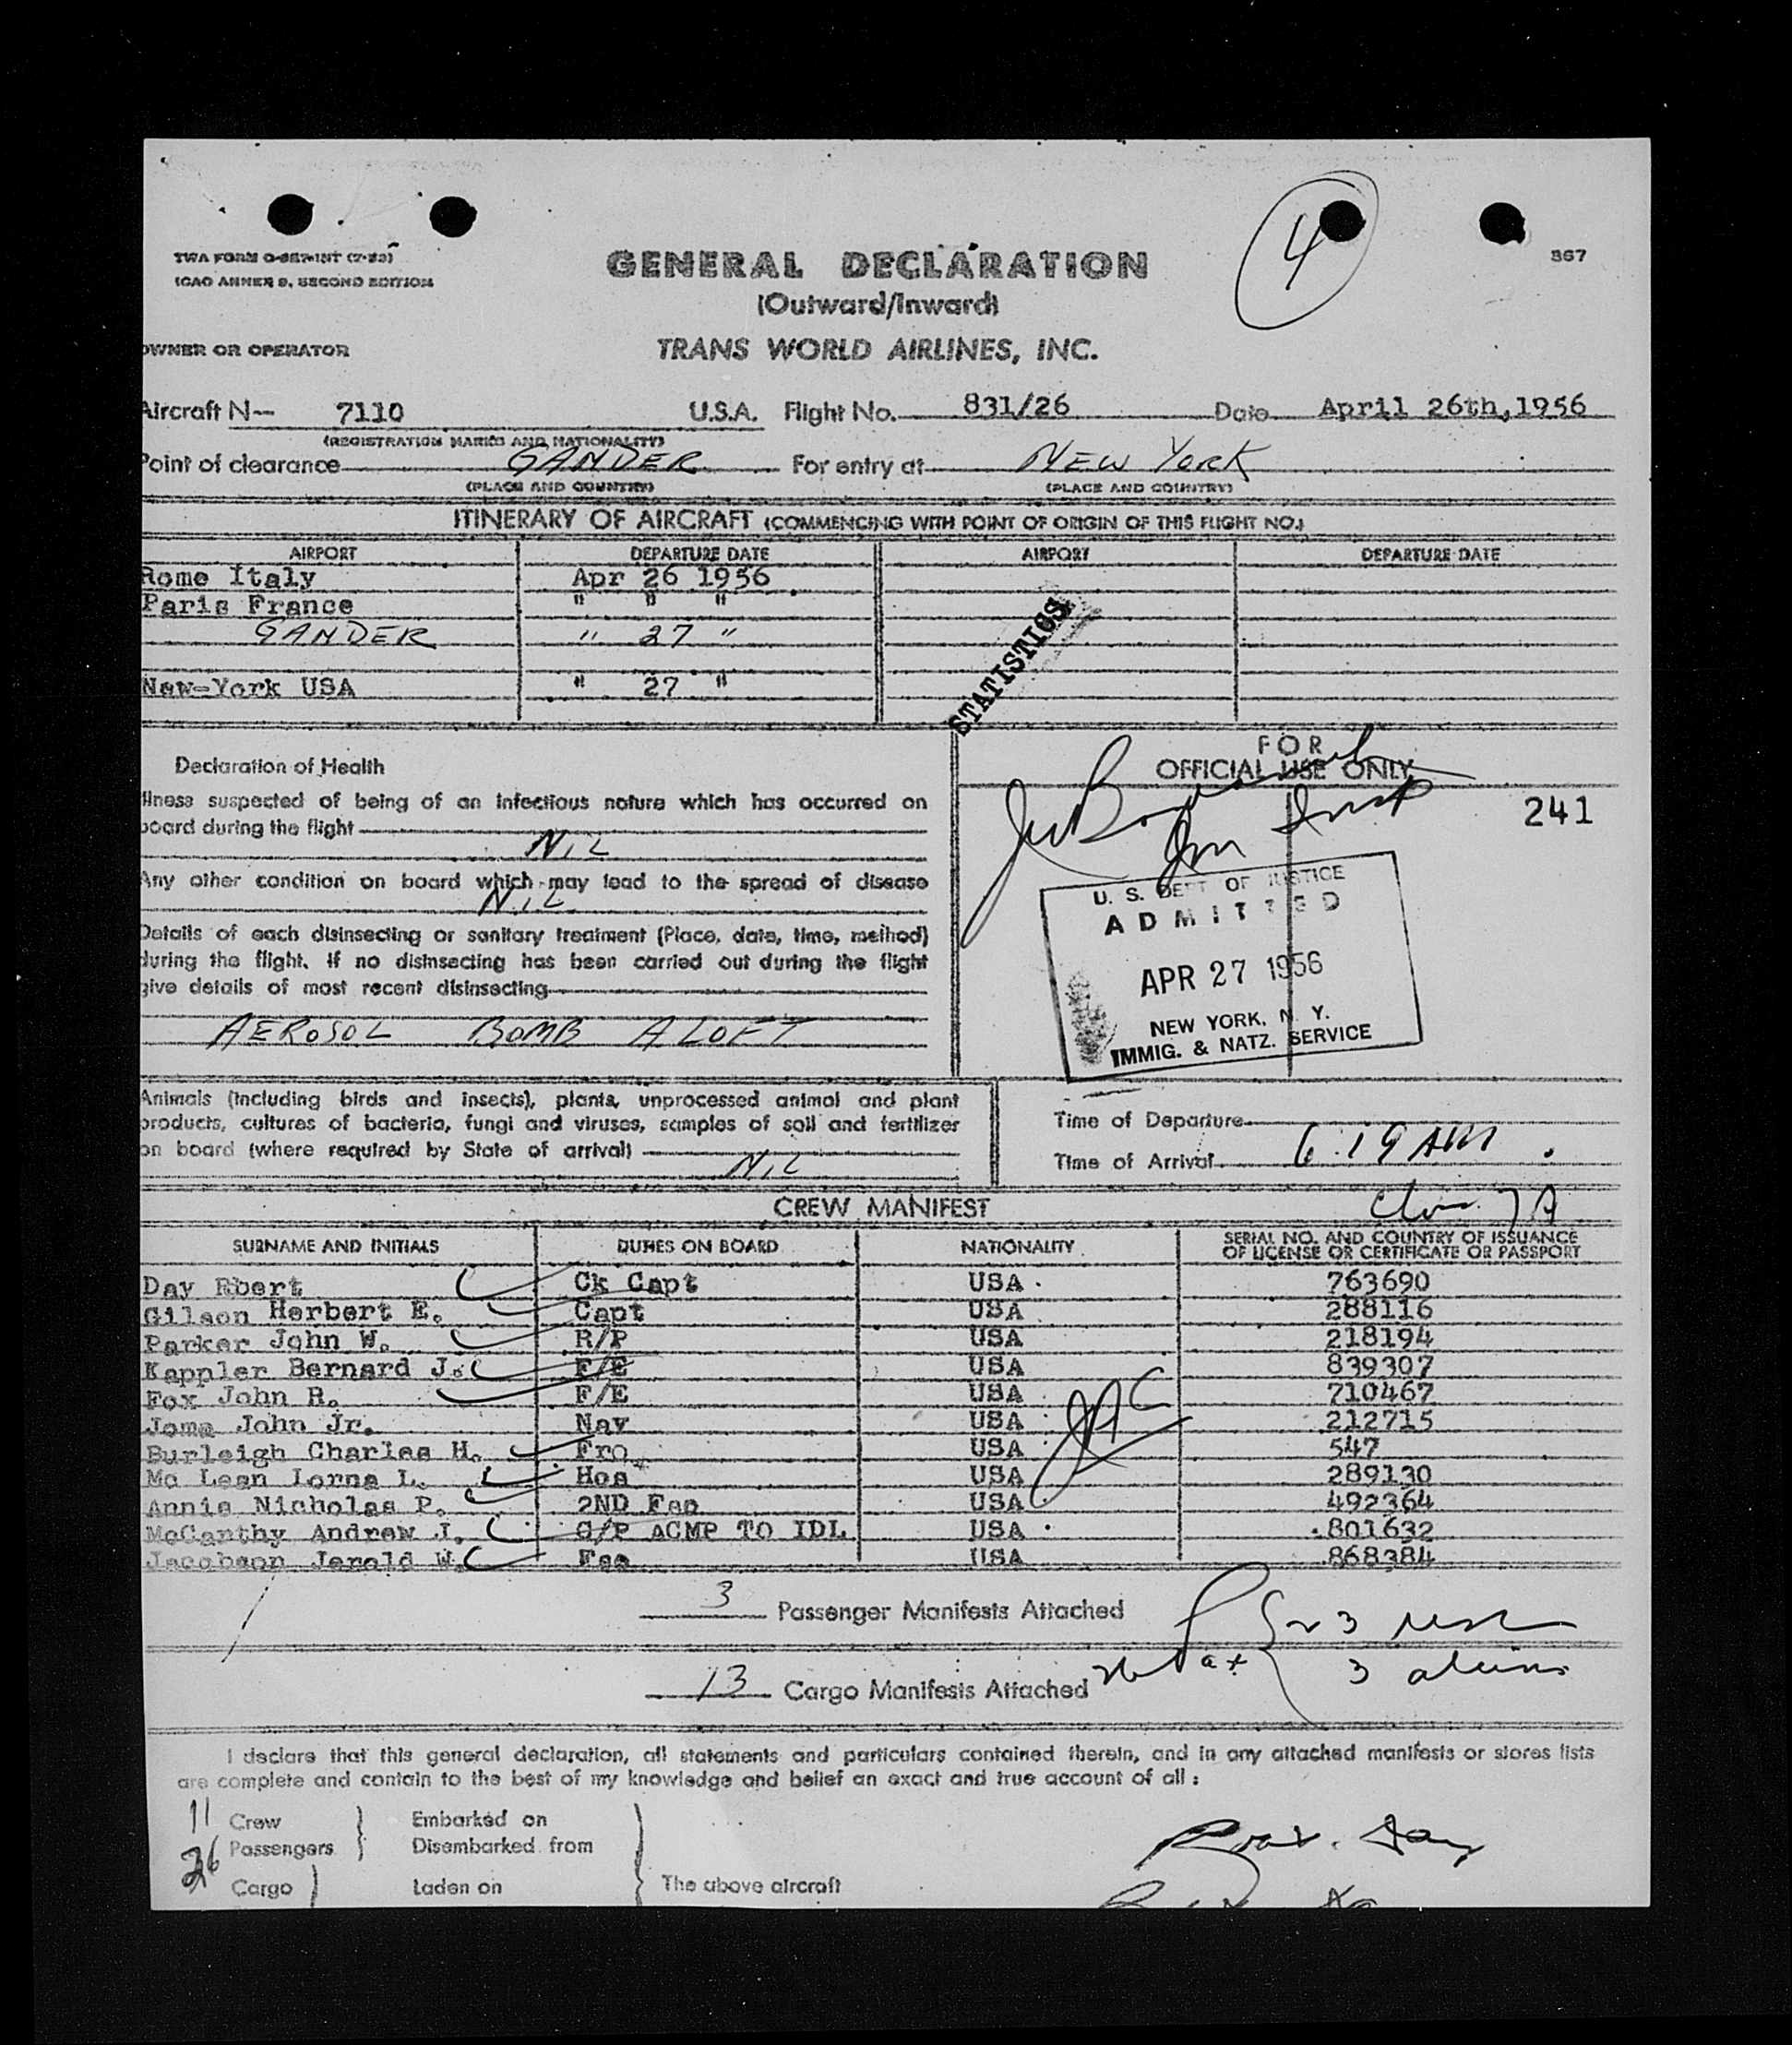 4
TWA FORM O-887-INT (7-53)
ICAO ANNEX 9, SECOND EDITION
367
GENERAL DECLARATION
(Outward/Inward)
OWNER OR OPERATOR
TRANS WORLD AIRLINES, INC.
Aircraft N— 7110 U.S.A. Flight No. 831/26 Date April 26th,1956
(REGISTRATION MARKS AND NATIONALITY)
Point of clearance GANDER For entry at NEW YORK
(PLACE AND COUNTRY) (PLACE AND COUNTRY)
ITINERARY OF AIRCRAFT (COMMENCING WITH POINT OF ORIGIN OF THIS FLIGHT NO.)
AIRPORT DEPARTURE DATE AIRPORT DEPARTURE DATE
Rome Italy Apr 26 1956
Paris France " " "
GANDER " 27 "
New-York USA " 27 "
STATISTICS
Declaration of Health
FOR
OFFICIAL USE ONLY
Illness suspected of being of an infectious nature which has occurred on
board during the flight
NIL
241
Any other condition on board which may lead to the spread of disease
NIL
Details of each disinsecting or sanitary treatment (Place, date, time, method)
during the flight. If no disinsecting has been carried out during the flight
give details of most recent disinsecting
AEROSOL BOMB ALOFT
U. S. DEPT OF JUSTICE
ADMITTED
APR 27 1956
NEW YORK, N. Y.
IMMIG. & NATZ. SERVICE
Animals (including birds and insects), plants, unprocessed animal and plant
products, cultures of bacteria, fungi and viruses, samples of soil and fertilizer
on board (where required by State of arrival)
NIL
Time of Departure
Time of Arrival 6:19 AM
CREW MANIFEST
SURNAME AND INITIALS DUTIES ON BOARD NATIONALITY SERIAL NO. AND COUNTRY OF ISSUANCE
OF LICENSE OR CERTIFICATE OR PASSPORT
Day Rbert Ck Capt USA 763690
Gilson Herbert E. Capt USA 288116
Parker John W. R/P USA 218194
Kappler Bernard J. F/E USA 839307
Fox John R. F/E USA 710467
John Jr. Nav USA 212715
Burleigh Charles H. Fro USA 547
Mc Lean Lorna L. Hos USA 289130
Annis Nicholas P. 2ND Fsa USA 492364
McCanthy Andrew J. ACMP TO IDL USA 801632
Jacobson Jerold W. Fsa USA 868384
3 Passenger Manifests Attached
3
13 Cargo Manifests Attached
3 aliens
I declare that this general declaration, all statements and particulars contained therein, and in any attached manifests or stores lists
are complete and contain to the best of my knowledge and belief an exact and true account of all :
11 Crew Embarked on
26 Passengers Disembarked from
Cargo Laden on The above aircraft